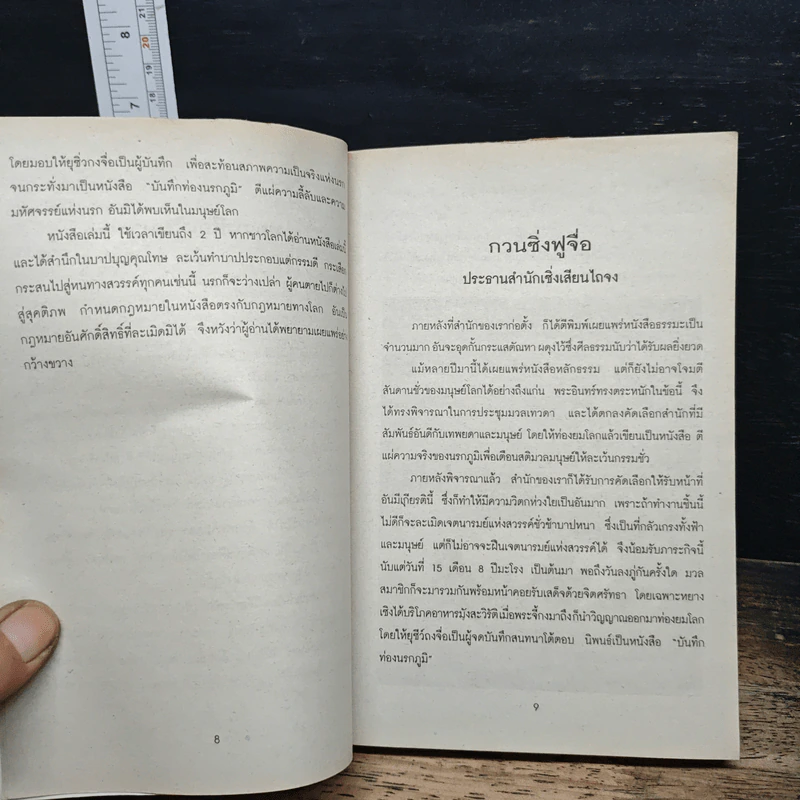 8
7
21
20
19
18
โดยมอบให้ยุซิ่วกงจื่อเป็นผู้บันทึก เพื่อสะท้อนสภาพความเป็นจริงแห่งนรก
จนกระทั่งมาเป็นหนังสือ "บันทึกท่องนรกภูมิ" ตีแผ่ความลี้ลับและความ
มหัศจรรย์แห่งนรก อันมิได้พบเห็นในมนุษย์โลก
หนังสือเล่มนี้ ใช้เวลาเขียนถึง 2 ปี หากชาวโลกได้อ่านหนังสือเล่มนี้
และได้สำนึกในบาปบุญคุณโทษ ละเว้นทำบาปประกอบแต่กรรมดี กระเสือก
กระสนไปสู่หนทางสวรรค์ทุกคนเช่นนี้ นรกก็จะว่างเปล่า ผู้คนตายไปก็ต่าง
สู่สุคติภพ กำหนดกฎหมายในหนังสือตรงกับกฎหมายทางโลก อันเป็น
กฎหมายอันศักดิ์สิทธิ์ที่ละเมิดมิได้ จึงหวังว่าผู้อ่านได้พยายามเผยแพร่อย่าง
กว้างขวาง
8
กวนซิ่งฟูจื่อ
ประธานสำนักเชิ่งเสียนไถจง
ภายหลังที่สำนักของเราก่อตั้ง ก็ได้ตีพิมพ์เผยแพร่หนังสือธรรมะเป็น
จำนวนมาก อันจะอุดกั้นกระแสตัณหา ผดุงไว้ซึ่งศีลธรรมนับว่าได้รับผลยิ่งยวด
แม้หลายปีมานี้ได้เผยแพร่หนังสือหลักธรรม แต่ก็ยังไม่อาจโจมตี
สันดานชั่วของมนุษย์โลกได้อย่างถึงแก่น พระอินทร์ทรงตระหนักในข้อนี้ จึง
ได้ทรงพิจารณาในการประชุมมวลเทวดา และได้ตกลงคัดเลือกสำนักที่มี
สัมพันธ์อันดีกับเทพยดาและมนุษย์ โดยให้ท่องยมโลกแล้วเขียนเป็นหนังสือ ตี
แผ่ความจริงของนรกภูมิเพื่อเตือนสติมวลมนุษย์ให้ละเว้นกรรมชั่ว
ภายหลังพิจารณาแล้ว สำนักของเราก็ได้รับการคัดเลือกให้รับหน้าที่
อันมีเกียรตินี้ ซึ่งก็ทำให้มีความวิตกห่วงใยเป็นอันมาก เพราะถ้าทำงานชิ้นนี้
ไม่ดีก็จะละเมิดเจตนารมย์แห่งสวรรค์ชั่วช้าบาปหนา ซึ่งเป็นที่กลัวเกรงทั้งฟ้า
และมนุษย์ แต่ก็ไม่อาจจะฝืนเจตนารมย์แห่งสวรรค์ได้ จึงน้อมรับภาระกิจนี้
นับแต่วันที่ 15 เดือน 8 ปีมะโรง เป็นต้นมา พอถึงวันลงภู่กันครั้งใด มวล
สมาชิกก็จะมารวมกันพร้อมหน้าคอยรับเสด็จด้วยจิตศรัทธา โดยเฉพาะหยาง
เชิงได้บริโภคอาหารมังสะวิรัติเมื่อพระจี้กงมาถึงก็นำวิญญาณออกมาท่องยมโลก
โดยให้ยุซิ่วถงจื่อเป็นผู้จดบันทึกสนทนาโต้ตอบ นิพนธ์เป็นหนังสือ "บันทึก
ท่องนรกภูมิ"
9